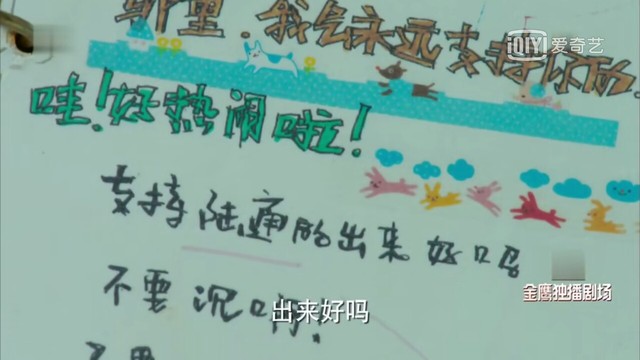 那里,我会永远支持你的.
iQIYI 爱奇艺
哇!好热闹啦!
支持陆通的出来好吗
不要沉呀!
出来好吗
金鹰独播剧场
不要